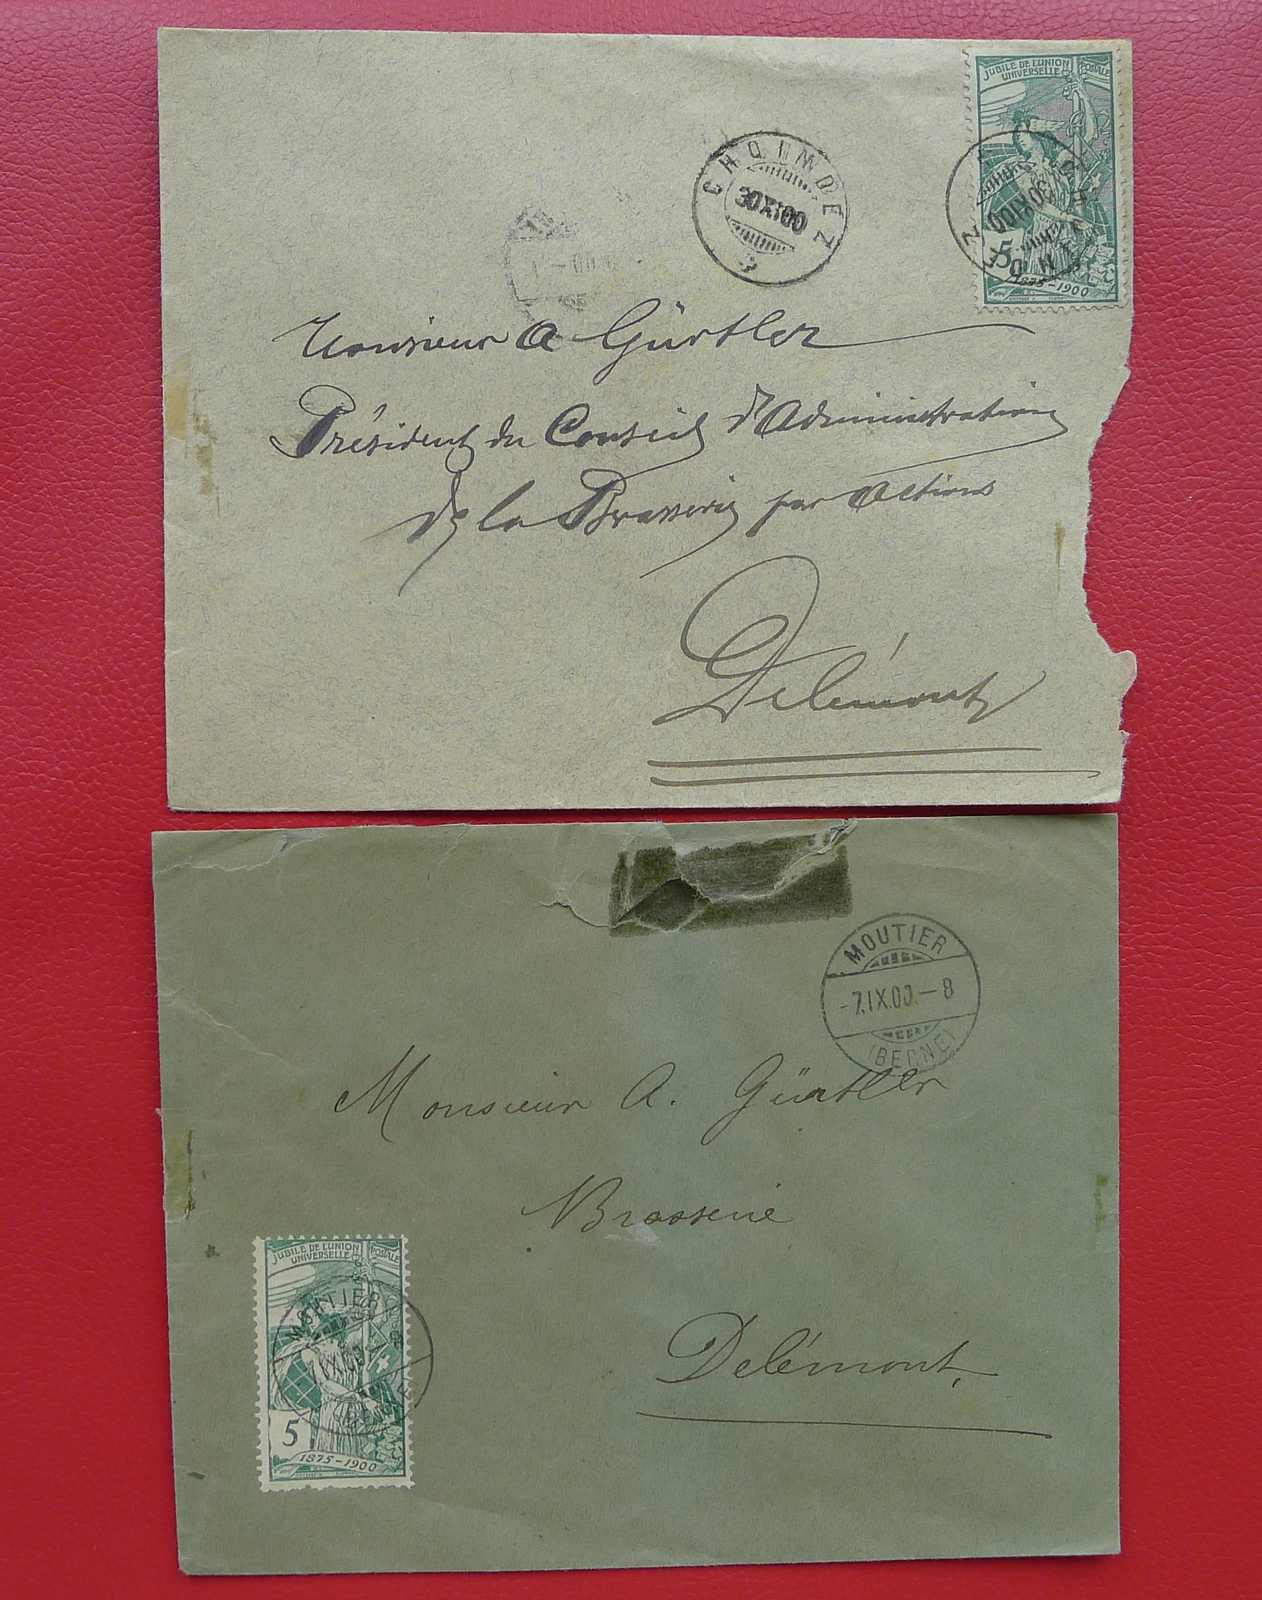 JUBILÉ DE L'UNION POSTALE
UNIVERSELLE
5
1875-1900
CHOINDEZ
30 XI 00
CHOINDEZ
30 XI 00
Monsieur A Gürtler
Président du Conseil d'Administration
de la Brasserie par Actions
Delémont
MOUTIER
-7.IX.00.-8
(BERNE)
Monsieur A. Gürtler
Brasserie
Delémont.
JUBILÉ DE L'UNION POSTALE
UNIVERSELLE
MOUTIER
IX.00
5
1875-1900